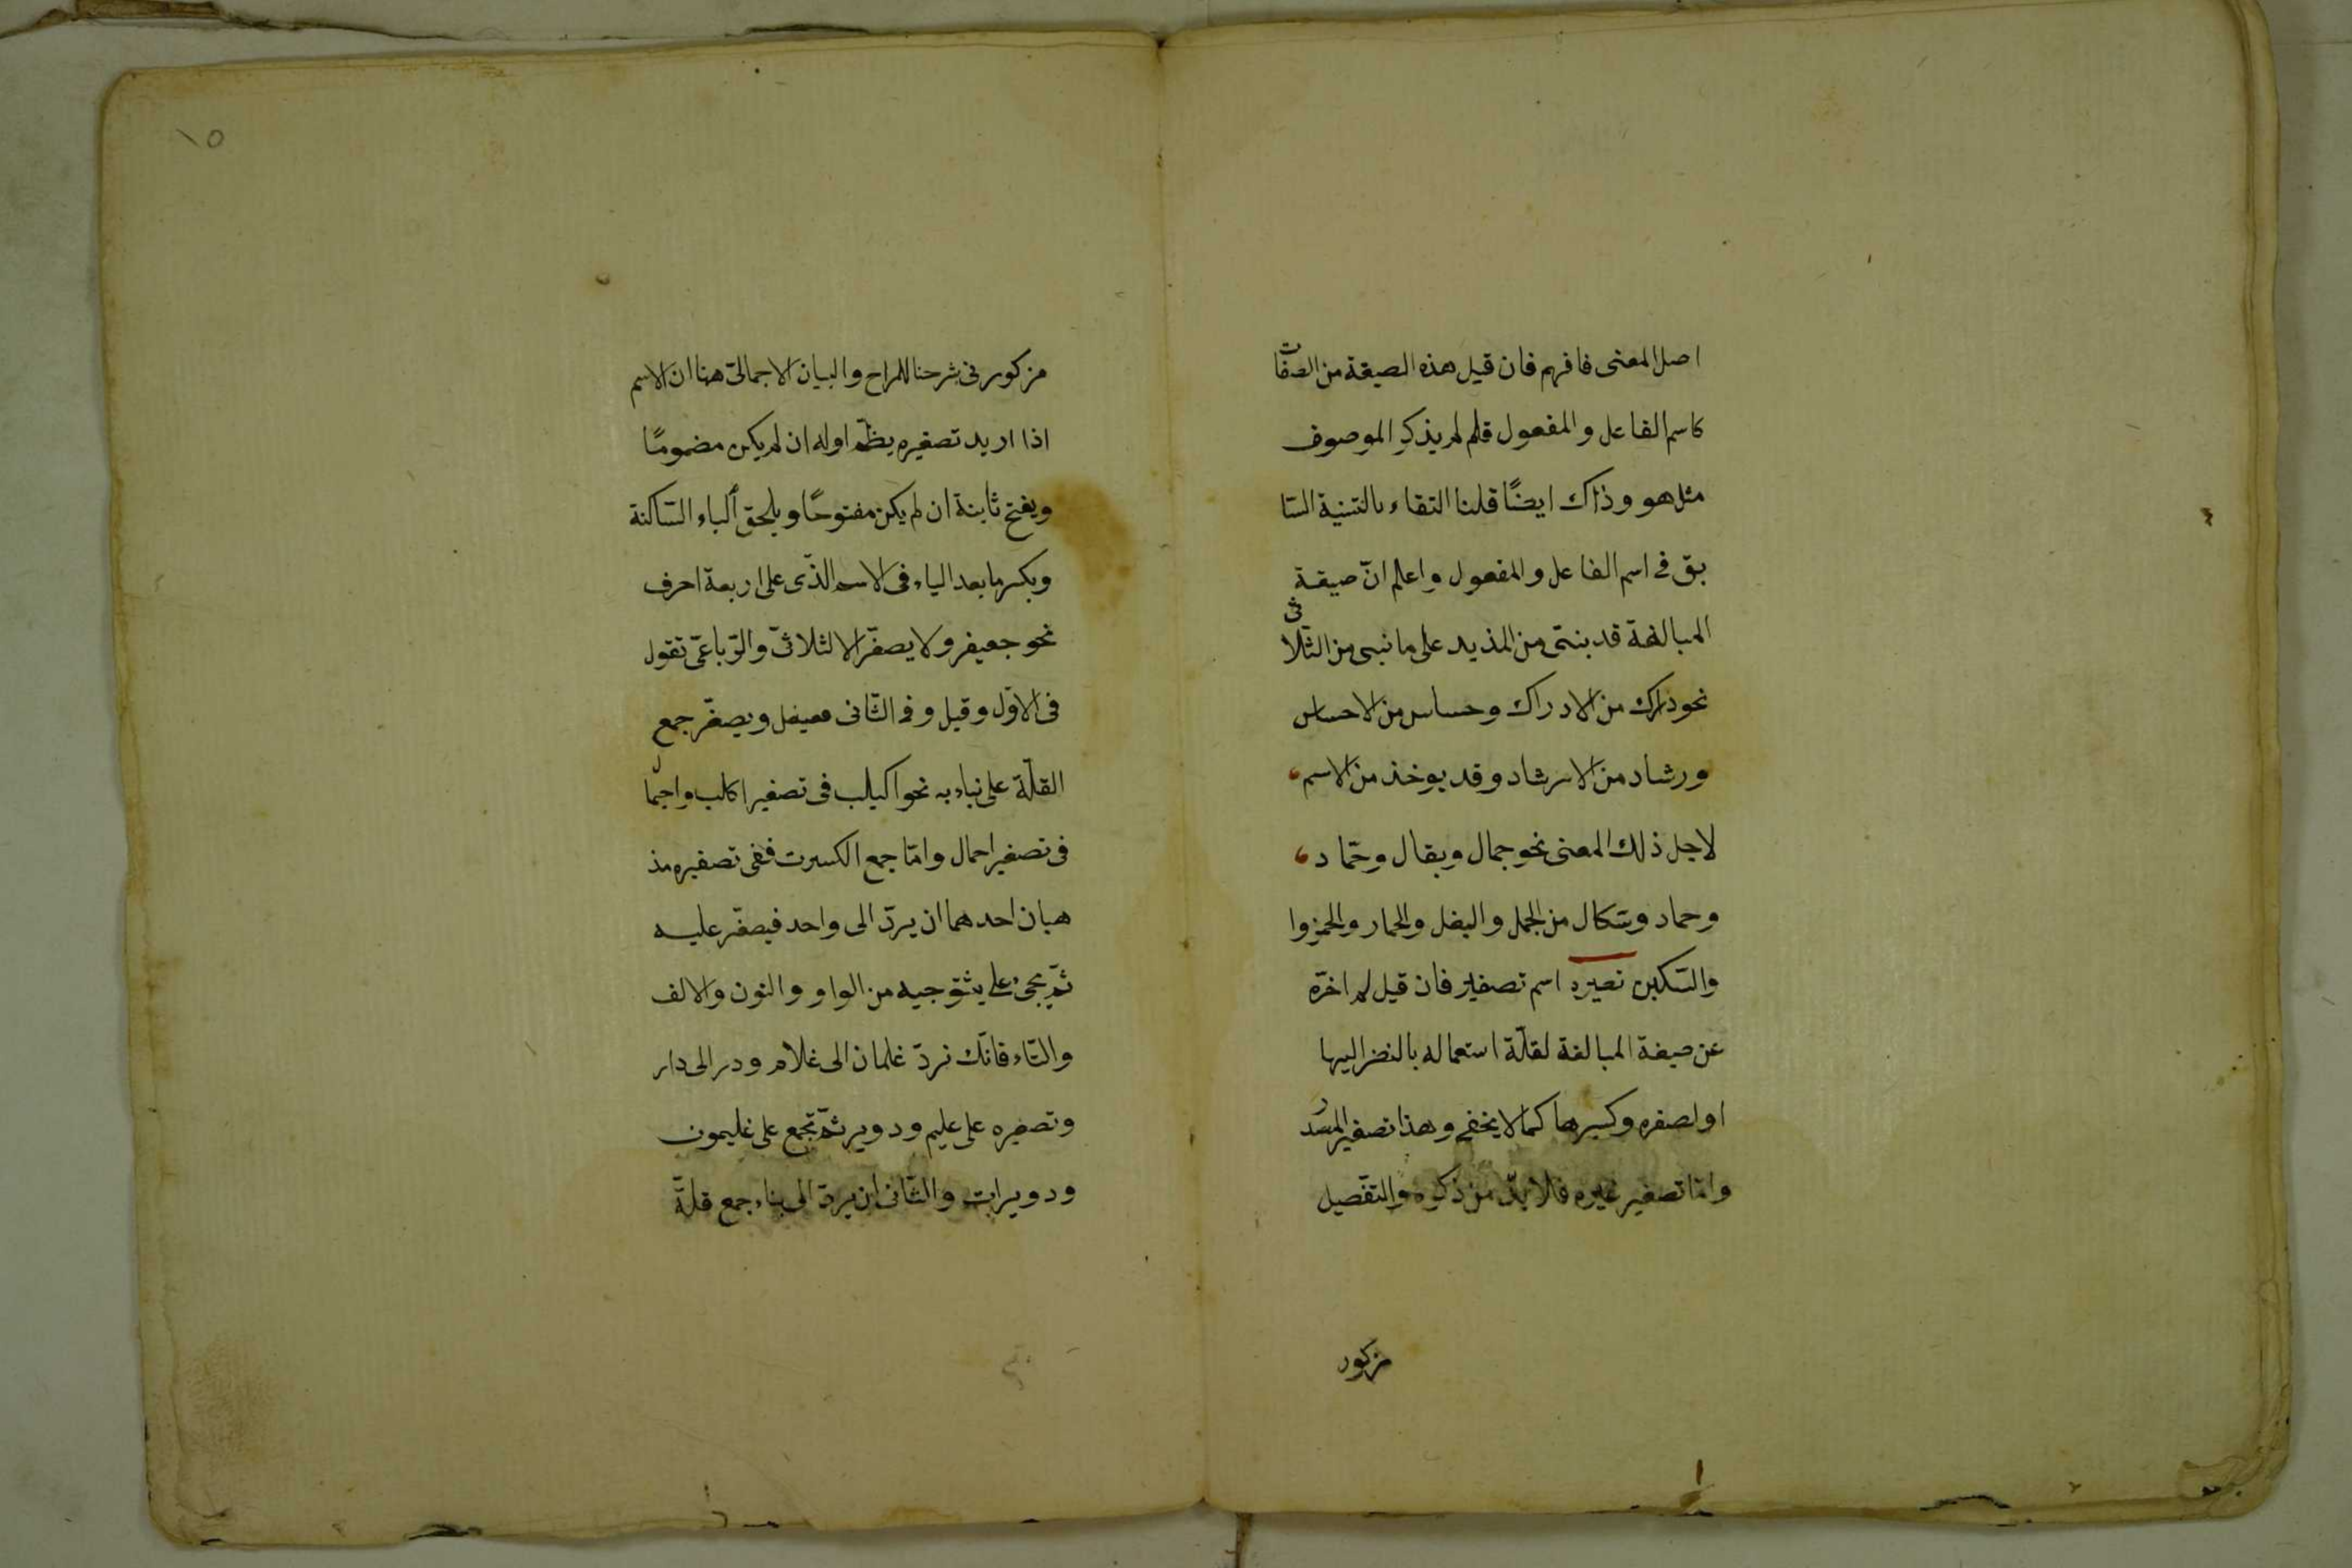 اصل المعنى فافهم فان قيل هذه الصيقة من الصفات
كاسم الفاعل والمفعول فلم لم يذكر الموصوف
مثل هو وذاك ايضًا قلنا التقاء بالتنية السّا
بق فى اسم الفاعل والمفعول واعلم انّ صيقة
المبالغة قد بنتى من المذيد على ما نبى من الثلاثى
نحو دارك من الادراك وحساس من الاحساس
ورشاد من الارشاد وقد يوخذ من الاسم
لاجل ذلك المعنى نحو جمال وبقال وحمّاد
وحماد وسكال من الجمل والبغل والحمار والحمزوا
والسّكين نصيره اسم تصغير فان قيل لم اخرّه
عن صيغة المبالغة لقلّة استعماله بالنضر اليها
او لصفره وكسرها كما لا يخفى وهذا تصغير المصدر
وامّا تصغير غيره فلا بدّ من ذكره والتفصيل
مزكور
١٥
مزكور فى شرحنا للمراح والبيان الاجمالىّ هنا ان الاسم
اذا اريد تصغيره يظمّ اوله ان لم يكن مضمومًا
ويفتح ثاينة ان لم يكن مفتوحًا ويلحق الياء السّاكنة
وبكسر ما بعد الياء فى الاسم الذّى على اربعة احرف
نحو جعيفر ولا يصغّر الا لثلاثىّ والرّباعىّ تقول
فى الاوّل وقيل وفى الثّانى معيفل ويصغّر جمع
القلّة على نباء به نحو اكيلب فى تصغير اكلب واجمال
فى تصغير احمال وامّا جمع الكسرت ففى تصغيره مذ
هبان احدهما ان يردّ الى واحد فيصغّر عليه
ثمّ يجئ على يثتوجيه من الواو والنون والالف
والتّاء فانّك نردّ غلمان الى غلام ودر الى دار
وتصغيره على عليم ودوير ثمّ تجمع على غليمون
ودويرات والثّانى ان يردّ الى بناء جمع قلّة